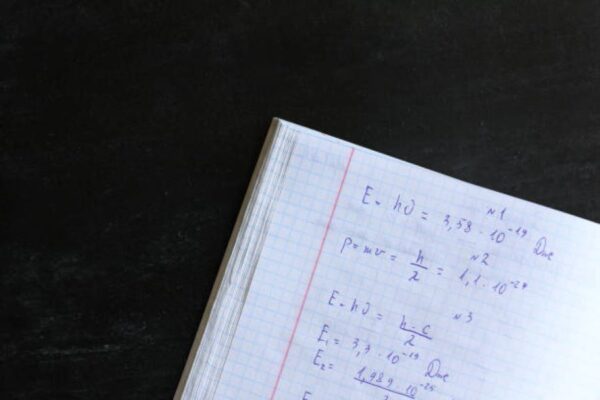 №1
E = hν = 3,58 · 10⁻¹⁹ Дж
№2
p = mv = h/λ = 1,1 · 10⁻²⁷
№3
E = hν = h·c/λ
E₁ = 3,3 · 10⁻¹⁹ Дж
E₂ = 1,989 · 10⁻²⁵